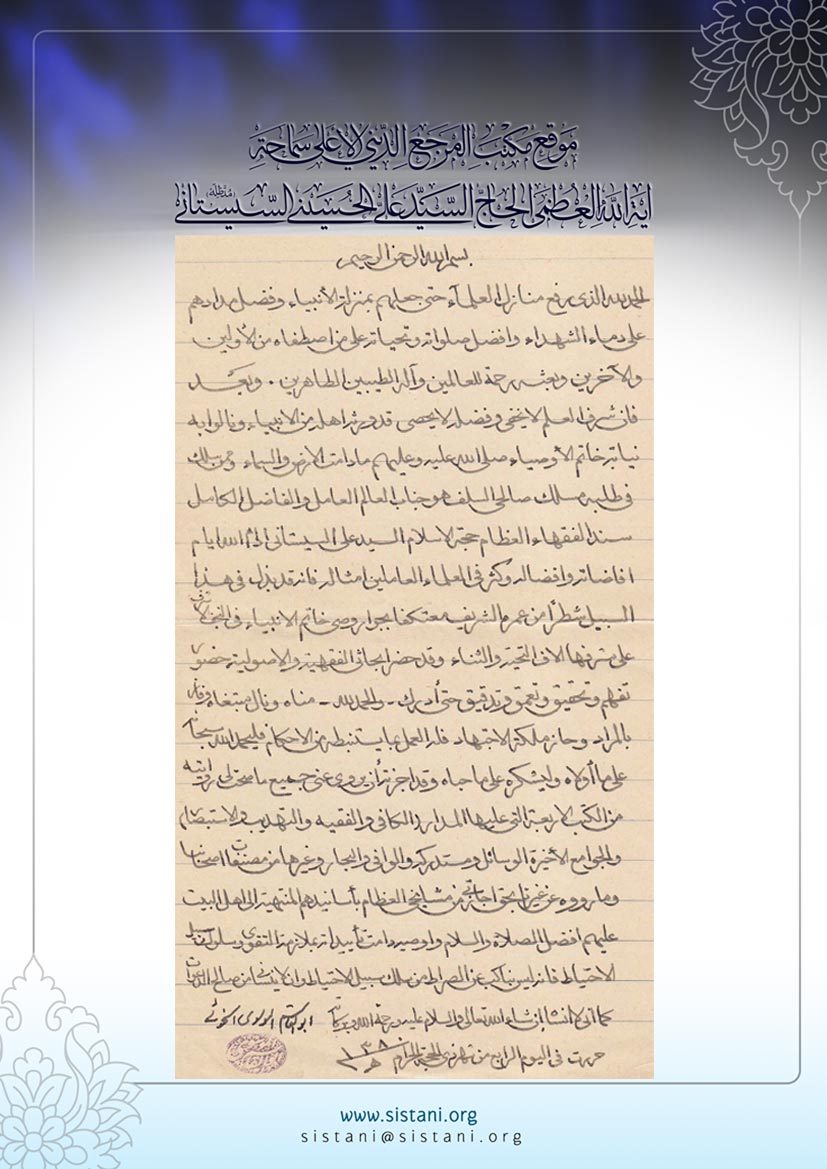 موقع مكتب المرجع الديني الأعلى سماحة
آية الله العظمى الحاج السيد علي الحسيني السيستاني مد ظله
بسم الله الرحمن الرحيم
الحمد لله الذي رفع منازل العلماء حتى جعلهم بمنزلة الأنبياء وفضل مدادهم
على دماء الشهداء وافضل صلواته وتحياته على من اصطفاه من الأولين
والآخرين وبعثه رحمة للعالمين وآله الطيبين الطاهرين . وبعد
فان شرف العلم لا يخفى وفضله لا يحصى قد ورثه اهله من الانبياء ونالوا به
نيابة خاتم الأوصياء صلى الله عليه وعليهم مادامت الارض والسماء وممن سلك
في طلبه مسلك صالحي السلف هو جناب العالم العامل والفاضل الكامل
سند الفقهاء العظام حجة الاسلام السيد علي السيستاني ادام الله ايام
افاضاته وافضاله وكثر في العلماء العاملين امثاله فانه قد بذل في هذا
السبيل شطراً من عمره الشريف معتكفا بجوار وصي خاتم الانبياء في النجف الاشرف
على مشرفها الاف التحية والثناء وقد حضر ابحاثي الفقهية والاصولية حضور
تفهم وتحقيق وتعمق وتدقيق حتى أدرك - والحمد لله - مناه ونال مبتغاه وفاز
بالمراد وحاز ملكة الاجتهاد فله العمل بما يستنبطه من الاحكام فليحمد الله سبحانه
على ما أولاه وليشكره على ما حباه وقد اجزته أن يروي عني جميع ما صحت لي روايته
من الكتب الاربعة التي عليها المدار (الكافي والفقيه والتهذيب والاستبصار)
والجوامع الأخيرة الوسائل ومستدركه والوافي والبحار وغيرها من مصنفات اصحابنا
وما رووه عن غيرنا بحق اجازتي من مشايخي العظام بأسانيدهم المنتهية إلى اهل البيت
عليهم افضل الصلاة والسلام واوصيه دامت تأييداته بملازمة التقوى وسلوك سبيل
الاحتياط فانه ليس بناكب عن الصراط من سلك سبيل الاحتياط وان لا ينساني من صالح الدعوات
كما أني لا انساه ان شاء الله تعالى والسلام عليه ورحمة الله وبركاته ابو القاسم الموسوي الخوئي
حررت في اليوم الرابع من شهر ذي الحجة الحرام ١٣٨٠ هـ
www.sistani.org
sistani@sistani.org